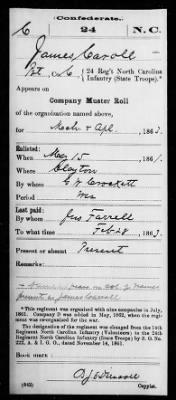 Confederate.
C 24 N.C.
James Caroll
Pvt, Co. C, 24 Reg't North Carolina
Infantry (State Troops).*
Appears on
Company Muster Roll
of the organization named above,
for Mch & Apl, 1863.
Enlisted:
When May 15, 1861.
Where Clayton
By whom Crockett
Period War
Last paid:
By whom Jas Farrell
To what time Feb 28, 1863.
Present or absent Present
Remarks:
as James Carroll
*This regiment was organized with nine companies in July,
1861. Company D was added in May, 1862, when the regi-
ment was reorganized for the war.
The designation of the regiment was changed from the 14th
Regiment North Carolina Infantry (Volunteers) to the 24th
Regiment North Carolina Infantry (State Troops) by S. O. No.
222, A. & I. G. O., dated November 14, 1861.
Book mark:
(642) Copyist.